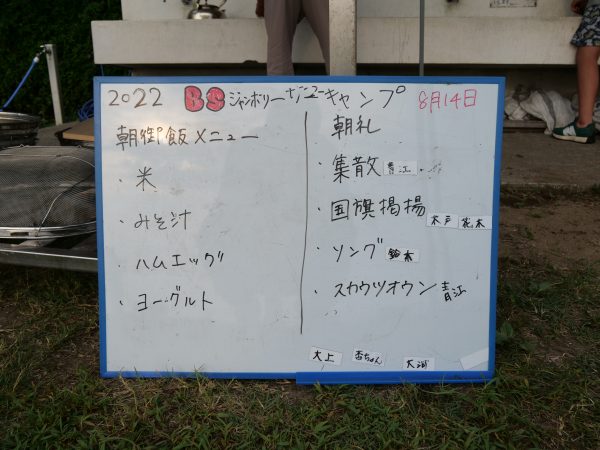 2022 BSジャンボリーデューキャンプ 8月14日
朝御飯メニュー
・米
・みそ汁
・ハムエッグ
・ヨーグルト
朝礼
・集散 青江
・国旗掲揚 木戸 花木
・ソング 鈴木
・スカウツオウン 青江
大上 杏ちゃん